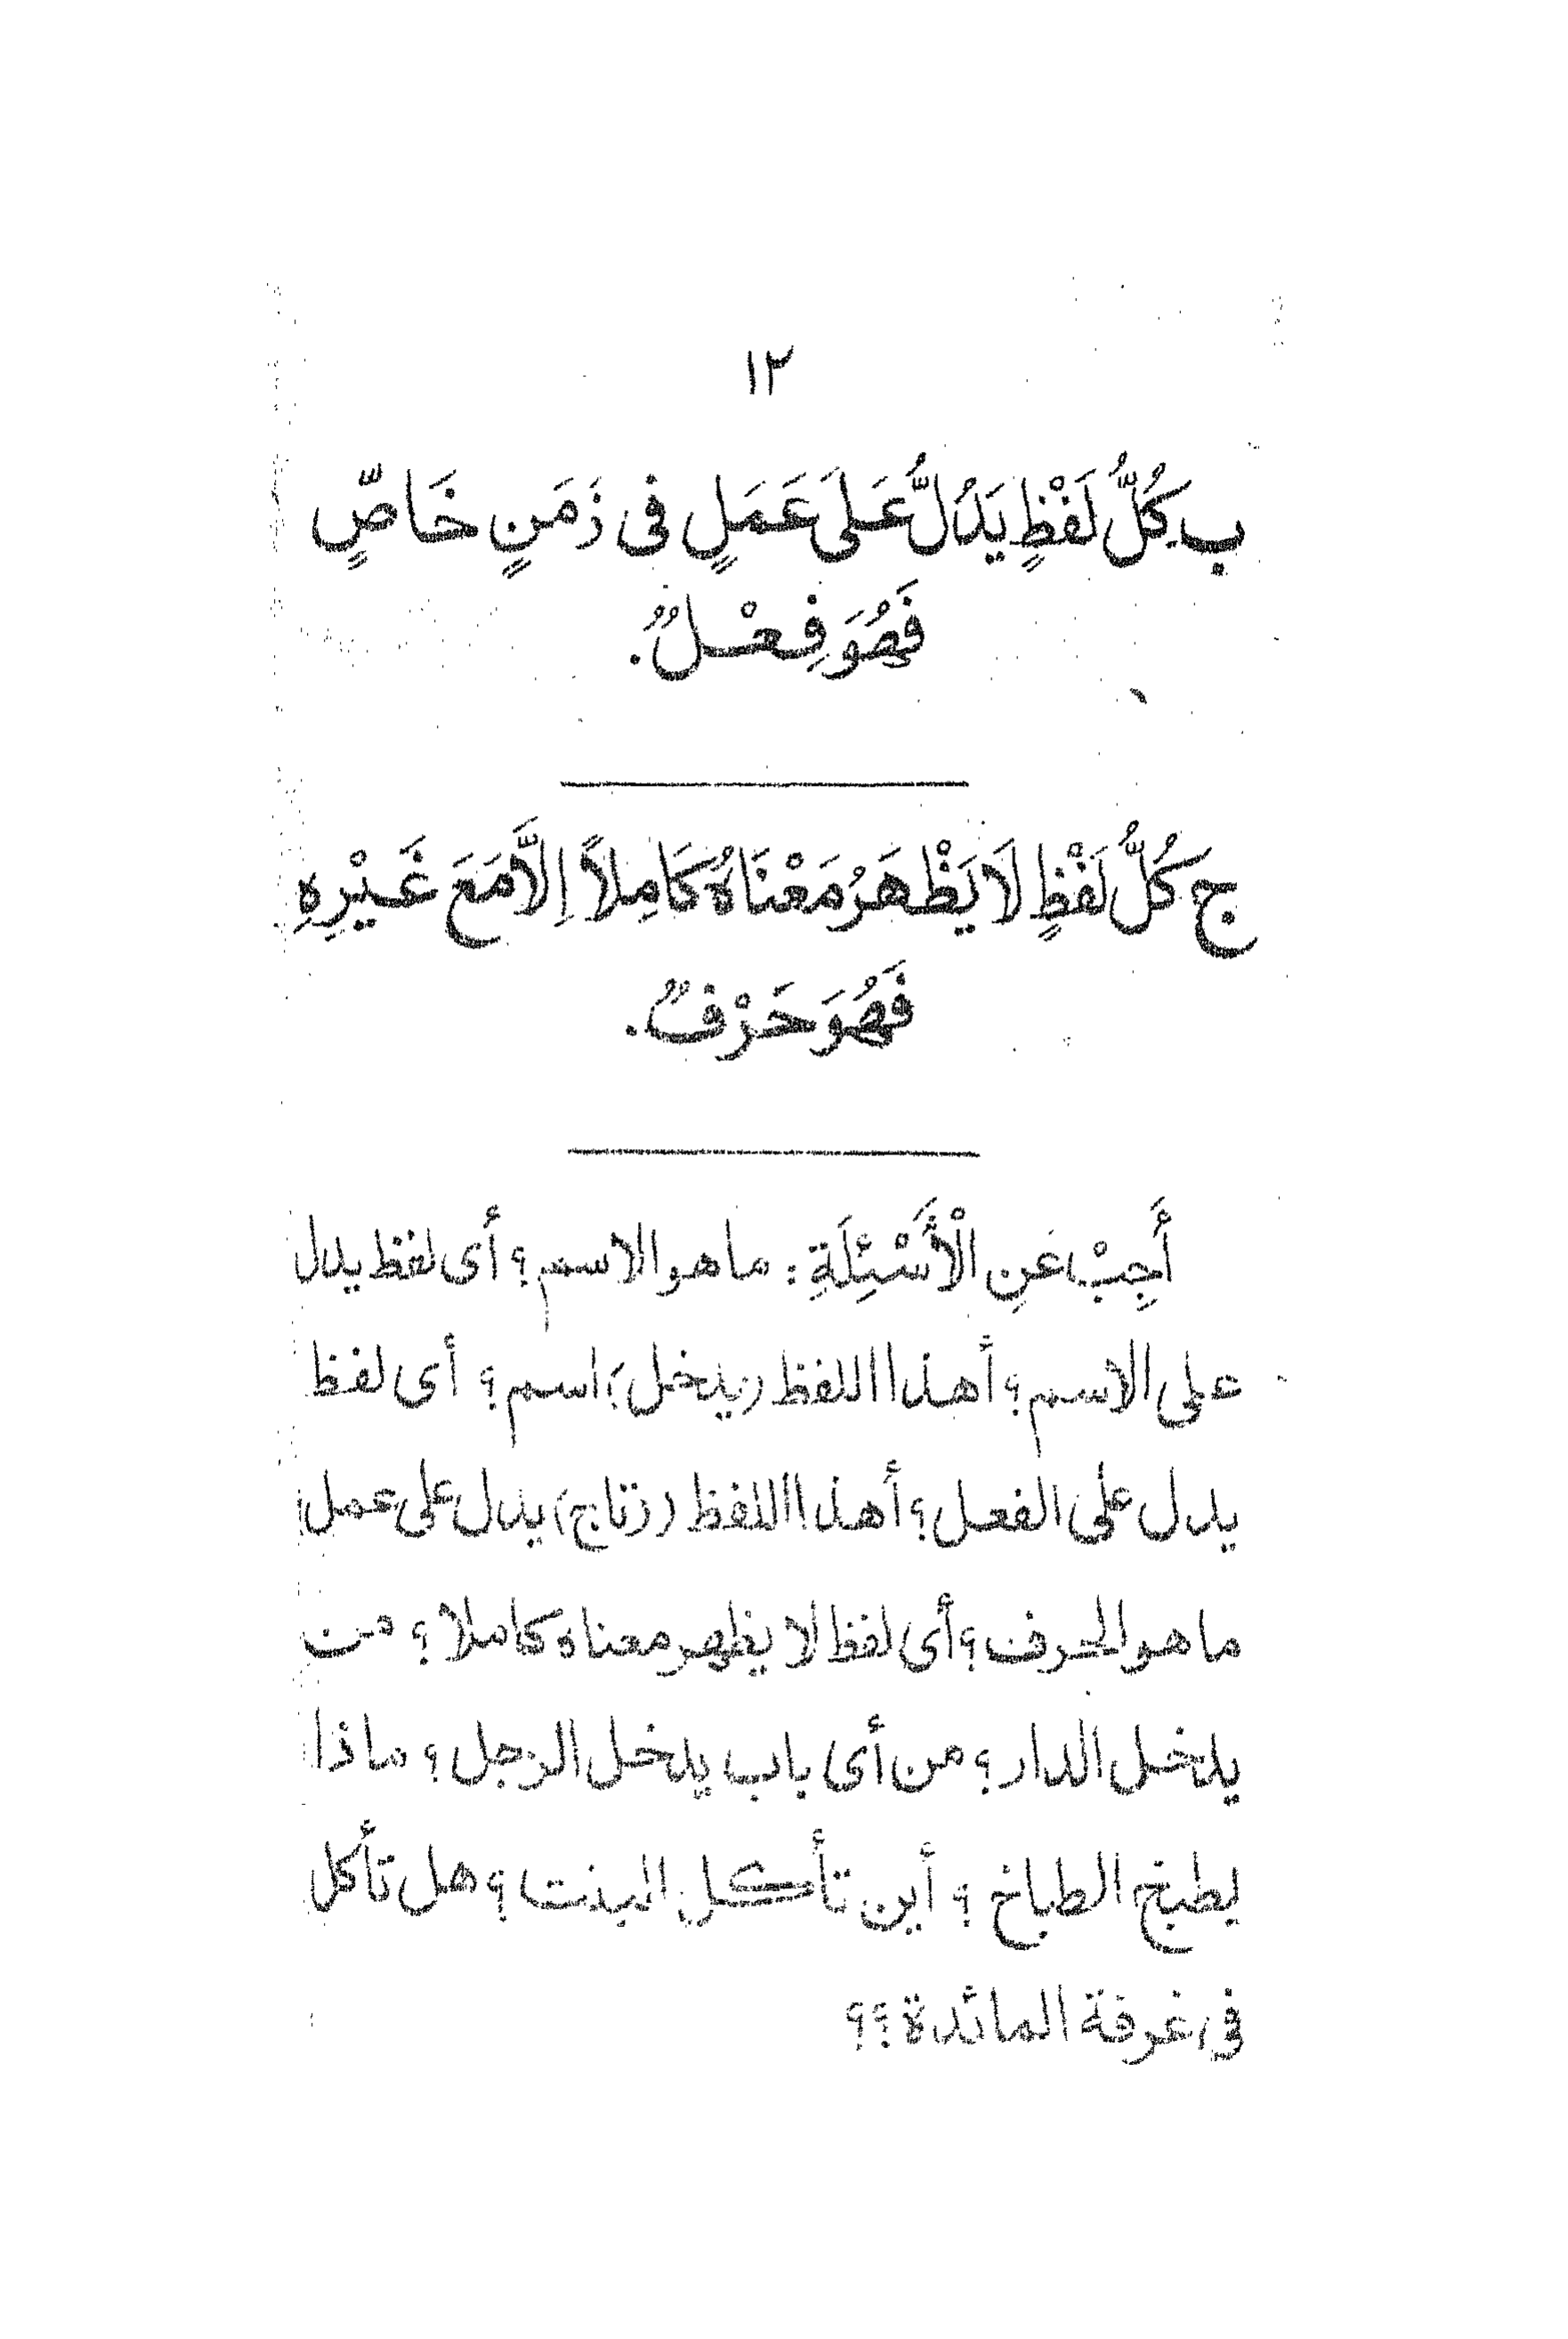 ١٢
ب كُلُّ لَفْظٍ يَدُلُّ عَلَى عَمَلٍ فى زَمَنٍ خَاصٍّ
فَهُوَ فِعْلٌ.
ج كُلُّ لَفْظٍ لَا يَظْهَرُ مَعْنَاهُ كَامِلاً إِلَّا مَعَ غَيْرِهِ
فَهُوَ حَرْفٌ.
أَجِبْ عَنِ الْأَسْئِلَةِ: ما هو الاسم؟ أى لفظ يدل
على الاسم؟ أهذا اللفظ (يدخل) اسم؟ أى لفظ
يدل على الفعل؟ أهذا اللفظ (زتاج) يدل على عمل
ما هو الحرف؟ أى لفظ لا يظهر معناه كاملا؟ من
يدخل الدار؟ من أى باب يدخل الرجل؟ ماذا
يطبخ الطباخ؟ أين تأكل البنت؟ هل تأكل
فى غرفة المائدة؟؟